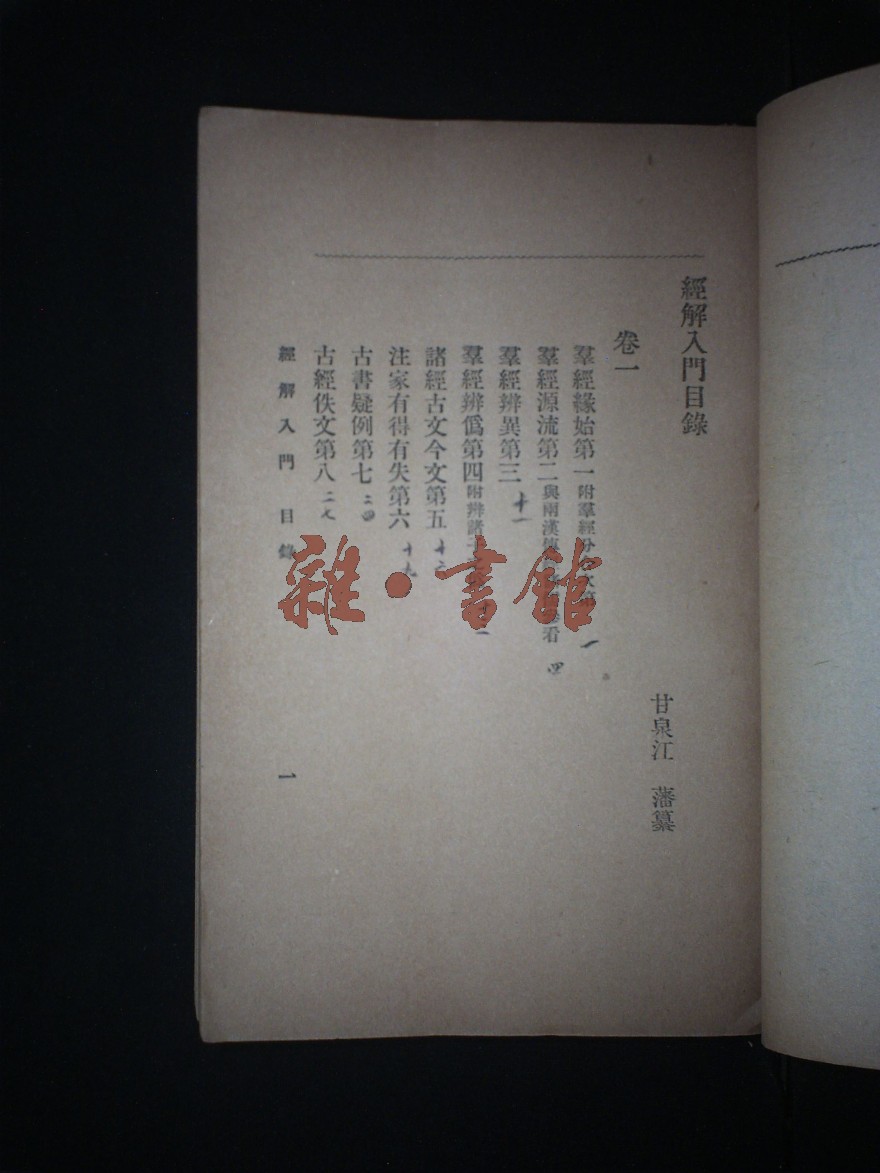 經解入門目錄
甘泉江 藩纂
卷一
羣經緣始第一 附羣經分 一
羣經源流第二 與兩漢 看 四
羣經辨異第三 十一
羣經辨僞第四 附辨諸
諸經古文今文第五
注家有得有失第六 十九
古書疑例第七 二四
古經佚文第八
經解入門 目錄
一
雜·書館